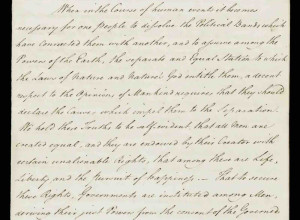 When in the Course of human events it becomes
necessary for one People to dissolve the Political Bands which
have connected them with another, and to assume among the
Powers of the Earth, the separate and Equal Station to which
the Laws of Nature and Nature's God entitle them, a decent
respect to the Opinions of Mankind requires that they should
declare the Causes which impel them to the Separation.
We hold these Truths to be self evident that all Men are
created equal, and they are endowed by their Creator with
certain unalienable Rights, that among these are Life,
Liberty and the Pursuit of Happiness — That to secure
these Rights, Governments are instituted among Men,
deriving their just Powers from the consent of the Governed